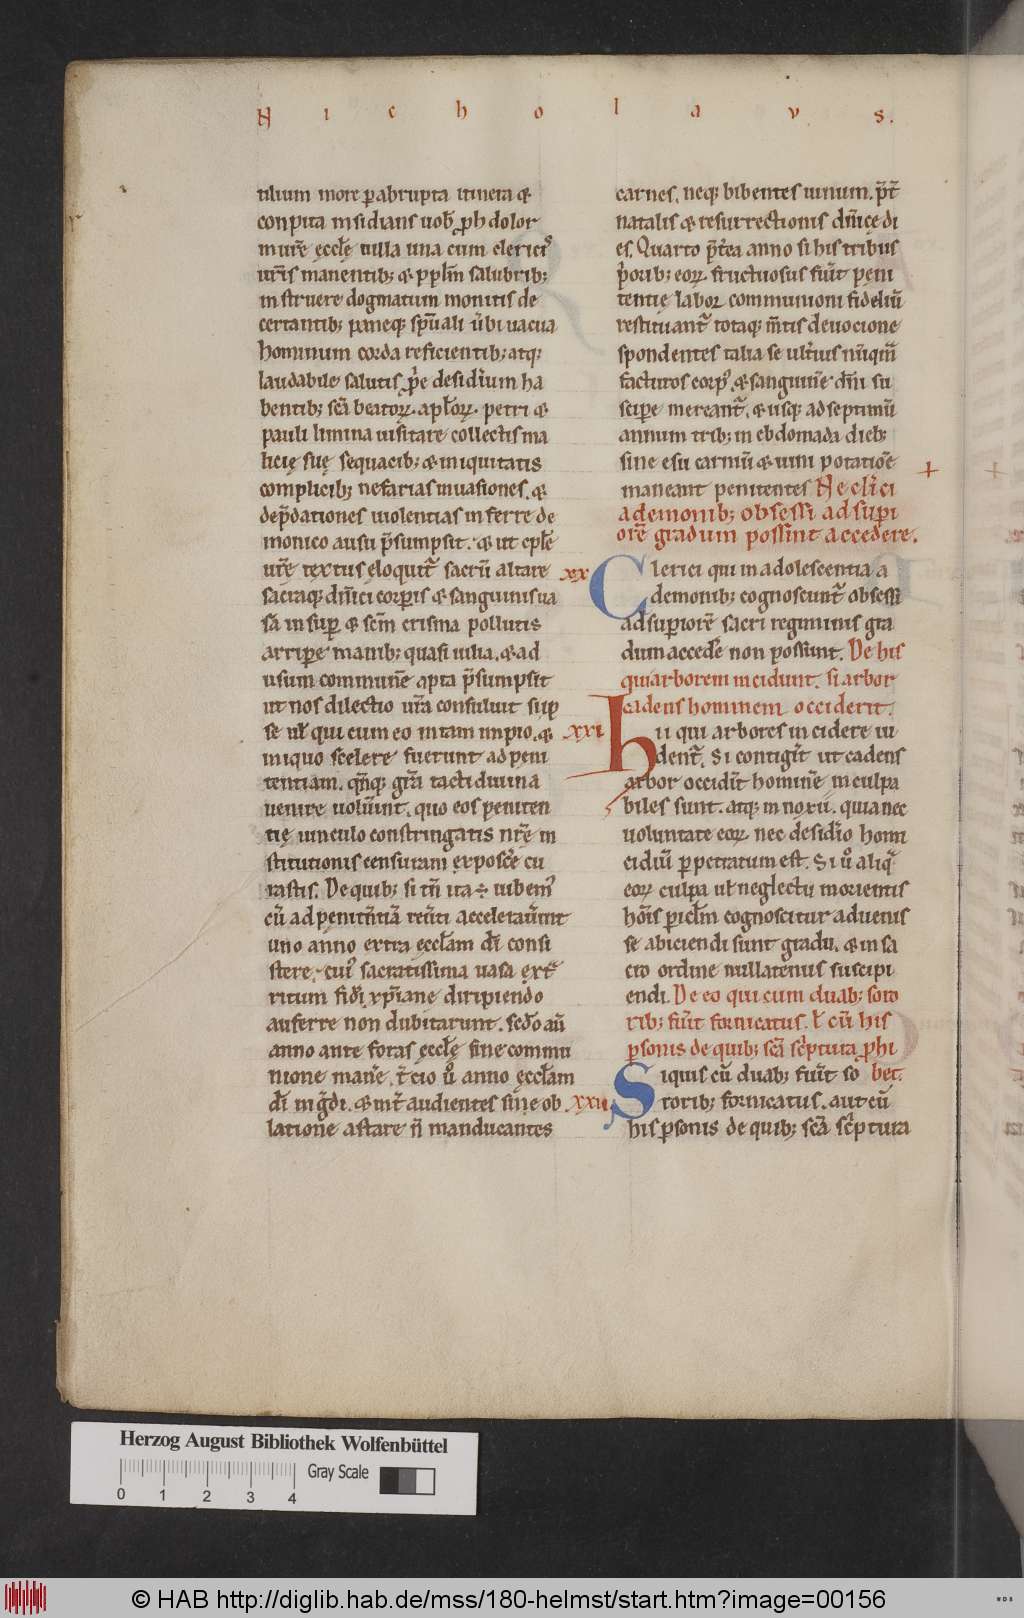 N i c h o l a v s.
tilium more p̲abrupta itinera &
conpita insidians uob̅. p̲h dolor
mure̅ ęccl̅ę uilla una cum clericꝰ
ur̅is manentib; & ppl̅m salubrib;
instruere dogmatum monitis de
certantib; paneq; sp̅uali u̅bi uacua
hominum corda reficientib; atq;
laudabile salutis p̅re desid̾ium ha
bentib; sc̅a beatoꝝ. apl̅oꝝ. petri &
pauli limina uisitare collectis ma
licię suę sequacib; & iniquitatis
complicib; nefarias inuasiones. &
dep̅dationes uiolentias inferre de
monico ausu p̅sumpsit. & ut ep̅lę
ur̅ę textus ęloquit᷑ sacru̅ altare
sacraq; dn̅ici corp̲is & sanguinis ua
sa insup̲ & sc̅m crisma pollutis
arrip̲e manib; quasi uilia. & ad
usum commune̅ apta p̅sumpsit
ut nos dilectio ur̅a consuluit sup̲
se ul̅ qui cum eo in tam impio. &
iniquo scelere fuerunt ad peni
tentiam. qn̅q; gr̅a tacti diuina
uenire uolu̅int. quo eos peniten
tię uinculo constringatis nr̅ę in
stitutionis censuram exposce̅ cu
rastis. De quib; si tn̅ ita ÷ iubemꝰ
cu̅ ad penitn̅tia̅ reu̅ti accelerau̅int
uno anno extra ęccl̅am di̅ consi
stere. cuiꝰ sacratissima uasa ext᷑
ritum fidi̅ xp̅iane diripiendo
auferre non dubitarunt. scd̅o au̅
anno ante foras ęccl̅ę sine commu
nione mane̅. t̅cio u̅o anno ęccl̅am
di̅ ing̅di. & int᷑ audientes sine ob
latione astare n̅ manducantes
carnes. neq; bibentes uinum. p̅t᷑
natalis & resurrectionis dn̅icę di
es. Quarto p̅t̅ea anno si his tribus
p̅orib; eoꝝ fructuosus fu̅it peni
tentię labor communioni fideliu̅
restituant᷑ totaq; m̅tis deuocione
spondentes talia se ult̾ius nu̅qua̅
facturos corpꝰ. & sanguine̅ dn̅i su
scip̲e mereant᷑. & usq; ad septimu̅
annum trib; in ebdomada dieb;
sine esu carniu̅ & uini potatio̅e
maneant penitentes. Ne cl̅ici
a demonib; obsessi ad sup̲i
ore̅ gradum possint accedere.
xx Clerici qui in adolescentia a
demonib; cognoscunt᷑ obsessi
ad sup̲iore̅ sacri regiminis gra
dum accede̅ non possunt. De his
qui arborem incidunt. si arbor
cadens hominem occiderit.
xxi Hii qui arbores incidere ui
dent᷑. Si contigit᷑ ut cadens
arbor occidit᷑ homine̅ inculpa
biles sunt. atq; innoxii. quia nec
uoluntate eoꝝ nec desid̾io homi
cidiu̅ p̲petratum est. Si u̅o aliq̅
eoꝝ culpa ul̅ neglectu morientis
ho̅is p̲icl̅m cognoscitur aduenis
se abiciendi sunt gradu. & in sa
cro ordine nullatenus suscipi
endi. De eo qui cum duab; soro
rib; fu̅it fornicatus. ł cu̅ his
p̲sonis de quib; sc̅a sc̅ptura p̲hi
bet.
xxii Siquis cu̅ duab; fu̅it so
rorib; fornicatus. aut cu̅
his p̲sonis de quib; sc̅a sc̅ptura
Herzog August Bibliothek Wolfenbüttel
Gray Scale
0 1 2 3 4
© HAB http://diglib.hab.de/mss/180-helmst/start.htm?image=00156